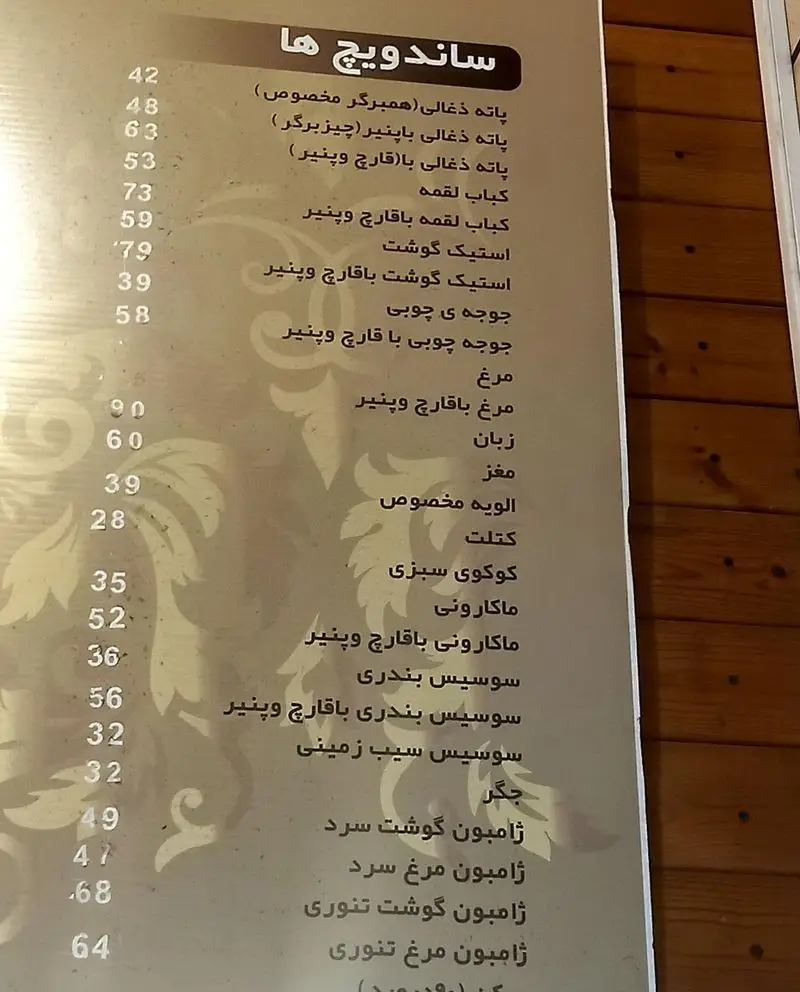 ساندویچ ها
پاته ذغالی(همبرگر مخصوص) 42
پاته ذغالی باپنیر(چیزبرگر) 48
پاته ذغالی با(قارچ وپنیر) 63
کباب لقمه 53
کباب لقمه باقارچ وپنیر 73
استیک گوشت 59
استیک گوشت باقارچ وپنیر 79
جوجه ی چوبی 39
جوجه چوبی با قارچ وپنیر 58
مرغ
مرغ باقارچ وپنیر
زبان 90
مغز 60
الویه مخصوص 39
کتلت 28
کوکوی سبزی
ماکارونی 35
ماکارونی باقارچ وپنیر 52
سوسیس بندری 36
سوسیس بندری باقارچ وپنیر 56
سوسیس سیب زمینی 32
جگر 32
ژامبون گوشت سرد 49
ژامبون مرغ سرد 47
ژامبون گوشت تنوری 68
ژامبون مرغ تنوری 64